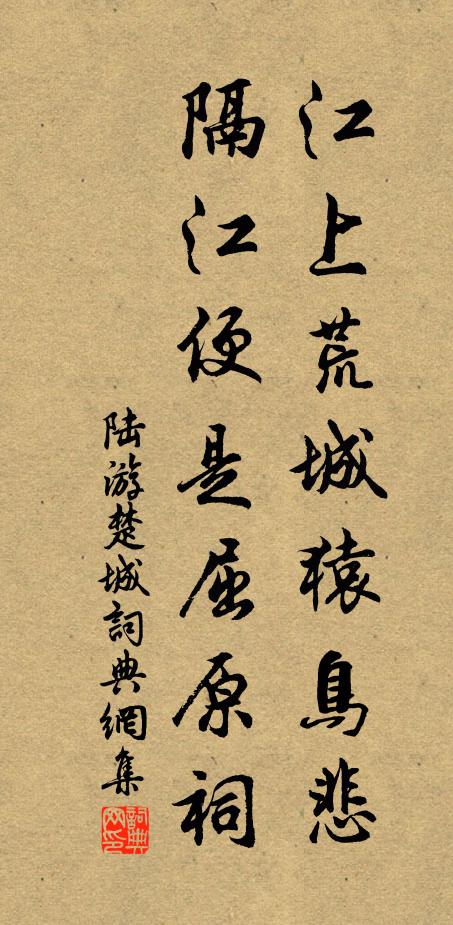 江上荒城猿鳥悲
隔江便是屈原祠
陆游楚城詞典網集
詞典网印